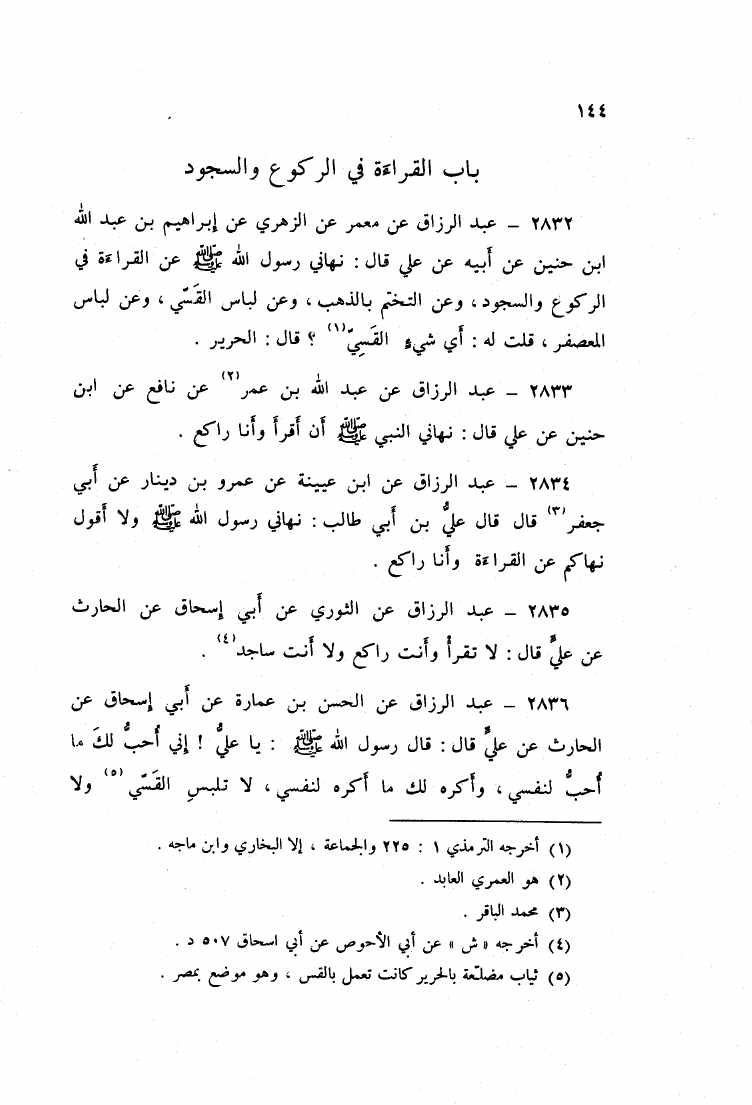 ١٤٤
باب القراءة في الركوع والسجود
٢٨٣٢ – عبد الرزاق عن معمر عن الزهري عن إبراهيم بن عبد الله
ابن حنين عن أبيه عن علي قال : نهاني رسول الله ﷺ عن القراءة في
الركوع والسجود ، وعن التختم بالذهب ، وعن لباس القَسّي ، وعن لباس
المعصفر ، قلت له : أي شيءٍ القَسِيّ(١) ؟ قال : الحرير .
٢٨٣٣ – عبد الرزاق عن عبد الله بن عمر(٢) عن نافع عن ابن
حنين عن علي قال : نهاني النبي ﷺ أن أقرأ وأنا راكع .
٢٨٣٤ – عبد الرزاق عن ابن عيينة عن عمرو بن دينار عن أبي
جعفر(٣) قال قال عليُّ بن أبي طالب : نهاني رسول الله ﷺ ولا أقول
نهاكم عن القراءة وأنا راكع .
٢٨٣٥ – عبد الرزاق عن الثوري عن أبي إسحاق عن الحارث
عن عليٍّ قال : لا تقرأْ وأنت راكع ولا أنت ساجد(٤) .
٢٨٣٦ – عبد الرزاق عن الحسن بن عمارة عن أبي إسحاق عن
الحارث عن عليٍّ قال : قال رسول الله ﷺ : يا عليُّ ! إني أُحبُّ لكَ ما
أُحبُّ لنفسي ، وأكره لك ما أكره لنفسي ، لا تلبسِ القَسّي(٥) ولا
(١) أخرجه الترمذي ١ : ٢٢٥ والجماعة ، إلا البخاري وابن ماجه .
(٢) هو العمري العابد .
(٣) محمد الباقر .
(٤) أخرجه «ش» عن أبي الأحوص عن أبي اسحاق ٥٠٧ د .
(٥) ثياب مضلّعة بالحرير كانت تعمل بالقس ، وهو موضع بمصر .